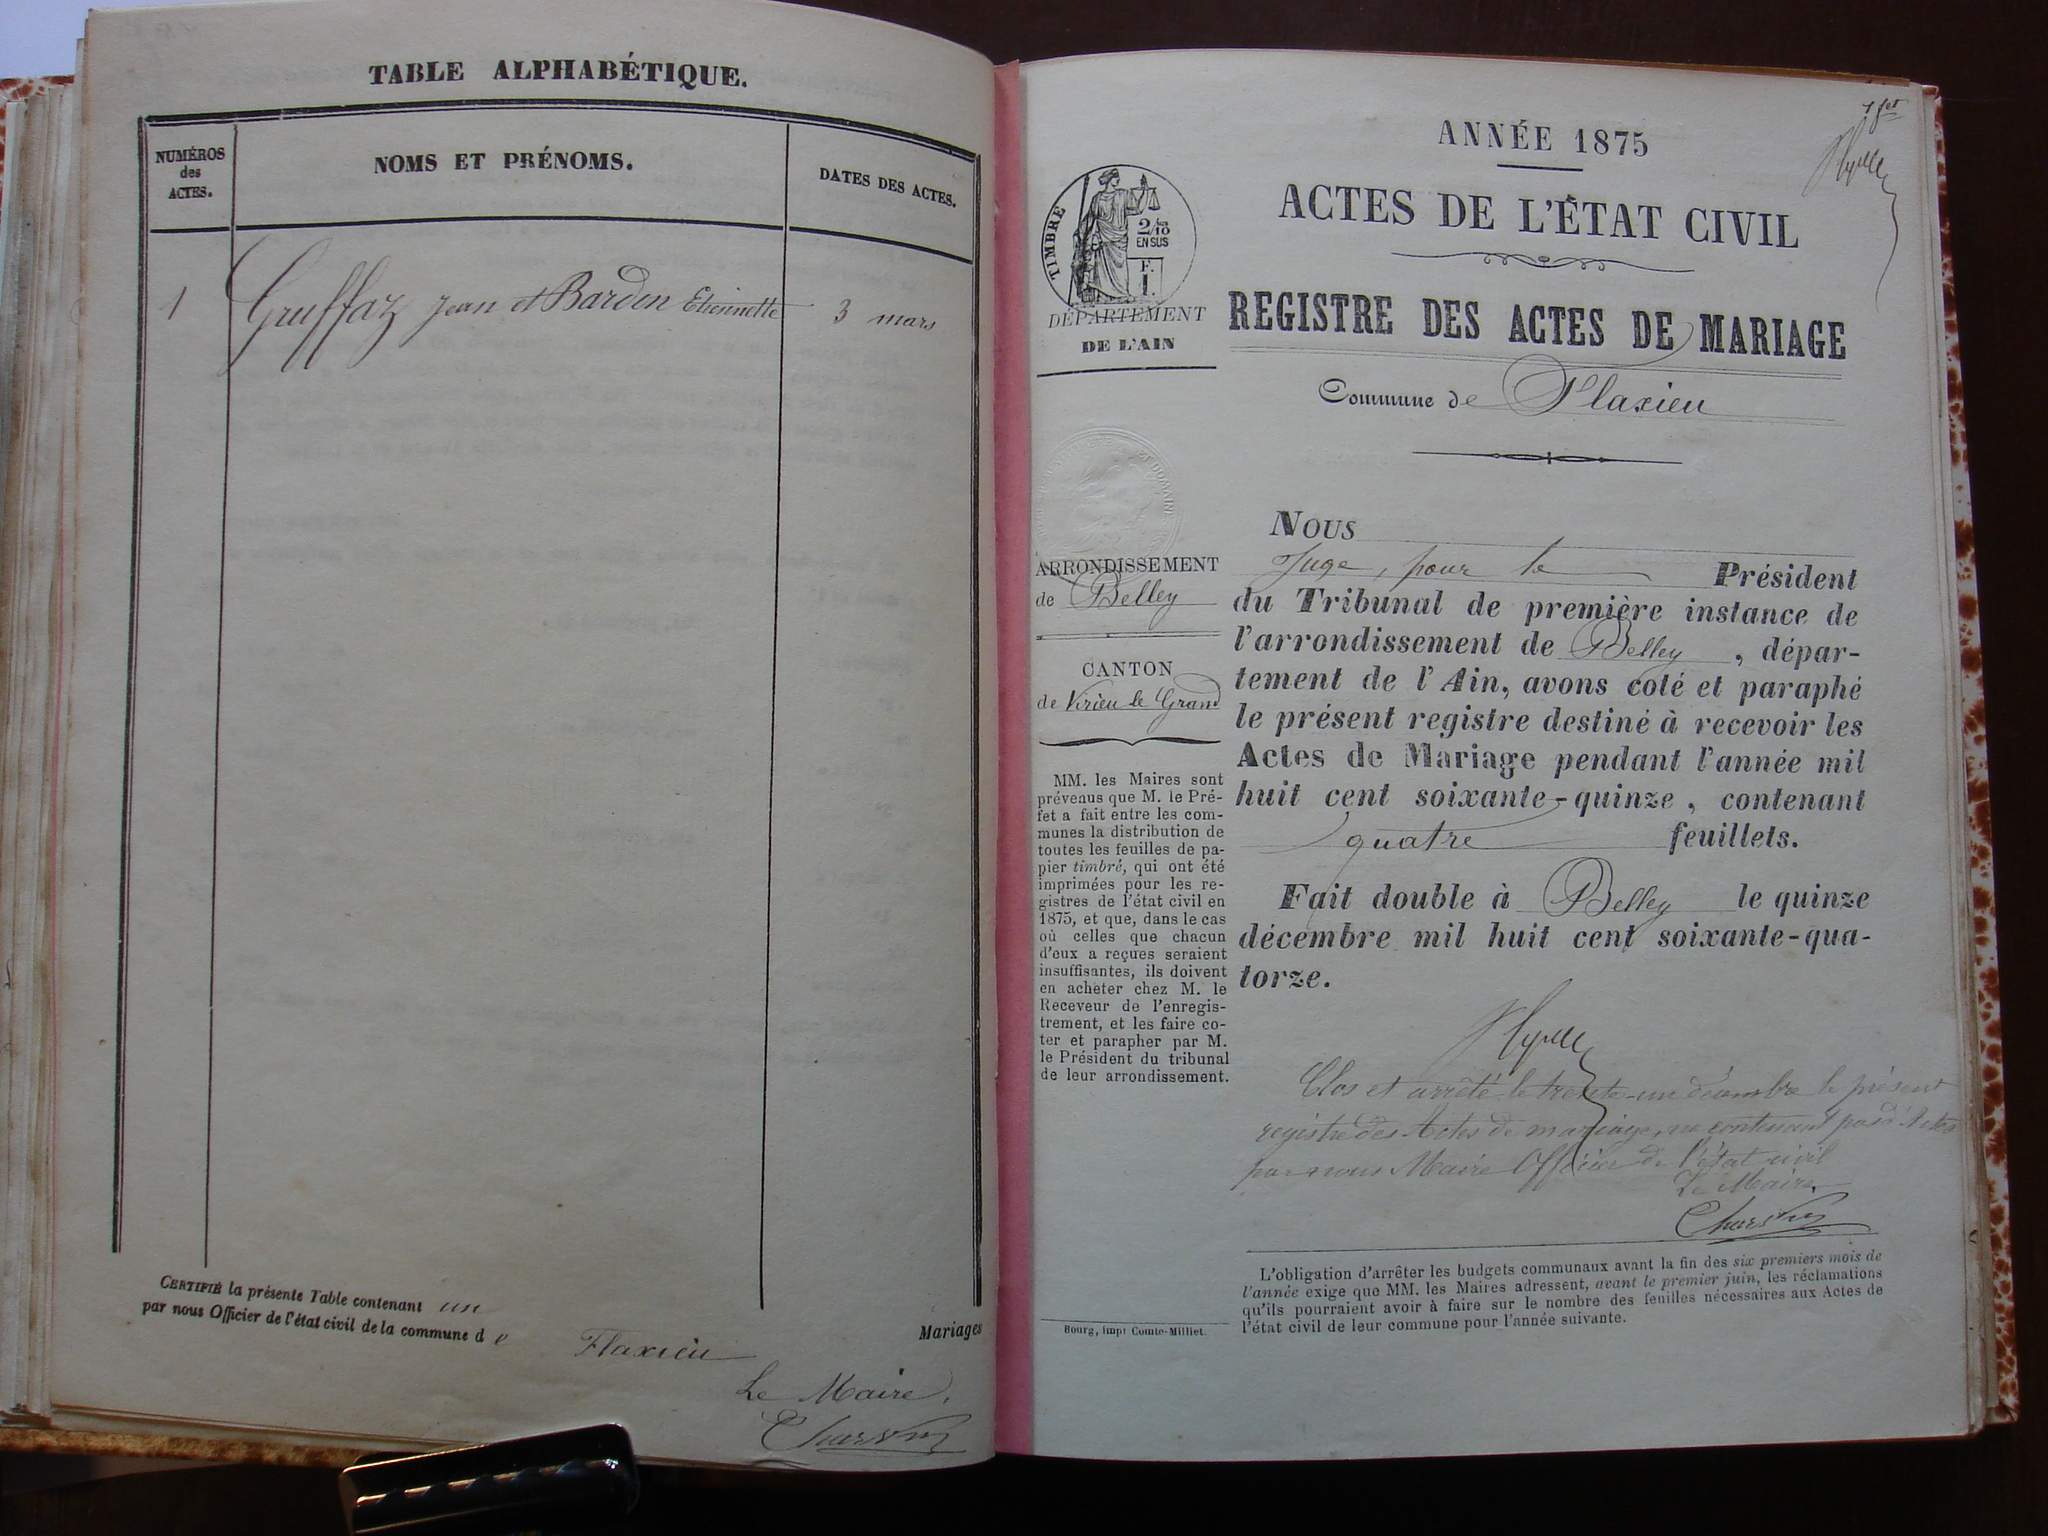 TABLE ALPHABÉTIQUE.
NUMÉROS
des
ACTES.
NOMS ET PRÉNOMS.
DATES DES ACTES.
1 Gruffaz Jean et Bardon Etiennette 3 mars
CERTIFIÉ la présente Table contenant un
Mariages
par nous Officier de l'état civil de la commune de Flaxieu
Le Maire,
1er
ANNÉE 1875
ACTES DE L'ÉTAT CIVIL
REGISTRE DES ACTES DE MARIAGE
Commune de Flaxieu
TIMBRE
2/10
EN SUS
F.
1.
DÉPARTEMENT
DE L'AIN
ARRONDISSEMENT
de Belley
CANTON
de Virieu le Grand
MM. les Maires sont
prévenus que M. le Pré-
fet a fait entre les com-
munes la distribution de
toutes les feuilles de pa-
pier timbré, qui ont été
imprimées pour les re-
gistres de l'état civil en
1875, et que, dans le cas
où celles que chacun
d'eux a reçues seraient
insuffisantes, ils doivent
en acheter chez M. le
Receveur de l'enregis-
trement, et les faire co-
ter et parapher par M.
le Président du tribunal
de leur arrondissement.
Bourg, impr Comte-Milliet.
NOUS
Juge, pour le Président
du Tribunal de première instance de
l'arrondissement de Belley, dépar-
tement de l'Ain, avons coté et paraphé
le présent registre destiné à recevoir les
Actes de Mariage pendant l'année mil
huit cent soixante-quinze, contenant
quatre feuillets.
Fait double à Belley le quinze
décembre mil huit cent soixante-qua-
torze.
Clos et arrêté le trente-un décembre le présent
registre des Actes de mariage, ne contenant pas d'Actes
par nous Maire Officier de l'état civil
Le Maire
L'obligation d'arrêter les budgets communaux avant la fin des six premiers mois de
l'année exige que MM. les Maires adressent, avant le premier juin, les réclamations
qu'ils pourraient avoir à faire sur le nombre des feuilles nécessaires aux Actes de
l'état civil de leur commune pour l'année suivante.